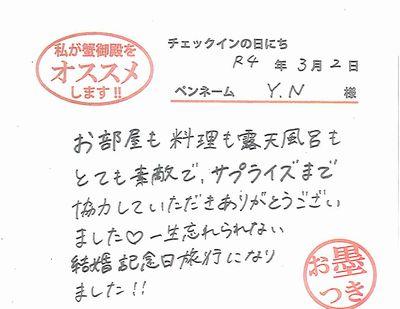 私が蟹御殿を
オススメ
します!!
チェックインの日にち
R4 年 3月 2日
ペンネーム Y.N 様
お部屋も料理も露天風呂も
とても素敵で、サプライズまで
協力していただきありがとうござい
ました♡一生忘れられない
結婚記念日旅行になり
ました!!
お墨
つき